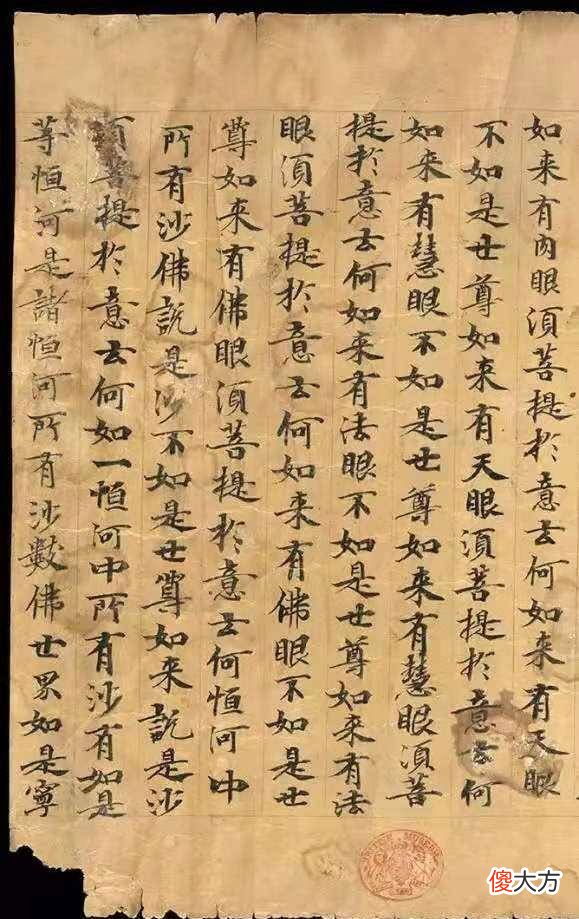 如来有肉眼湏菩提扵意云何如来有天眼
不如是世尊如来有天眼湏菩提扵意云何
如来有慧眼不如是世尊如来有慧眼湏菩
提扵意云何如来有法眼不如是世尊如来有法
眼湏菩提扵意云何如来有佛眼不如是世
尊如来有佛眼湏菩提扵意云何恒河中
所有沙佛說是沙不如是世尊如来說是沙
湏菩提扵意云何如一恒河中所有沙有如是
等恒河是諸恒河所有沙數佛世界如是寧
MUSEUM
傻大方